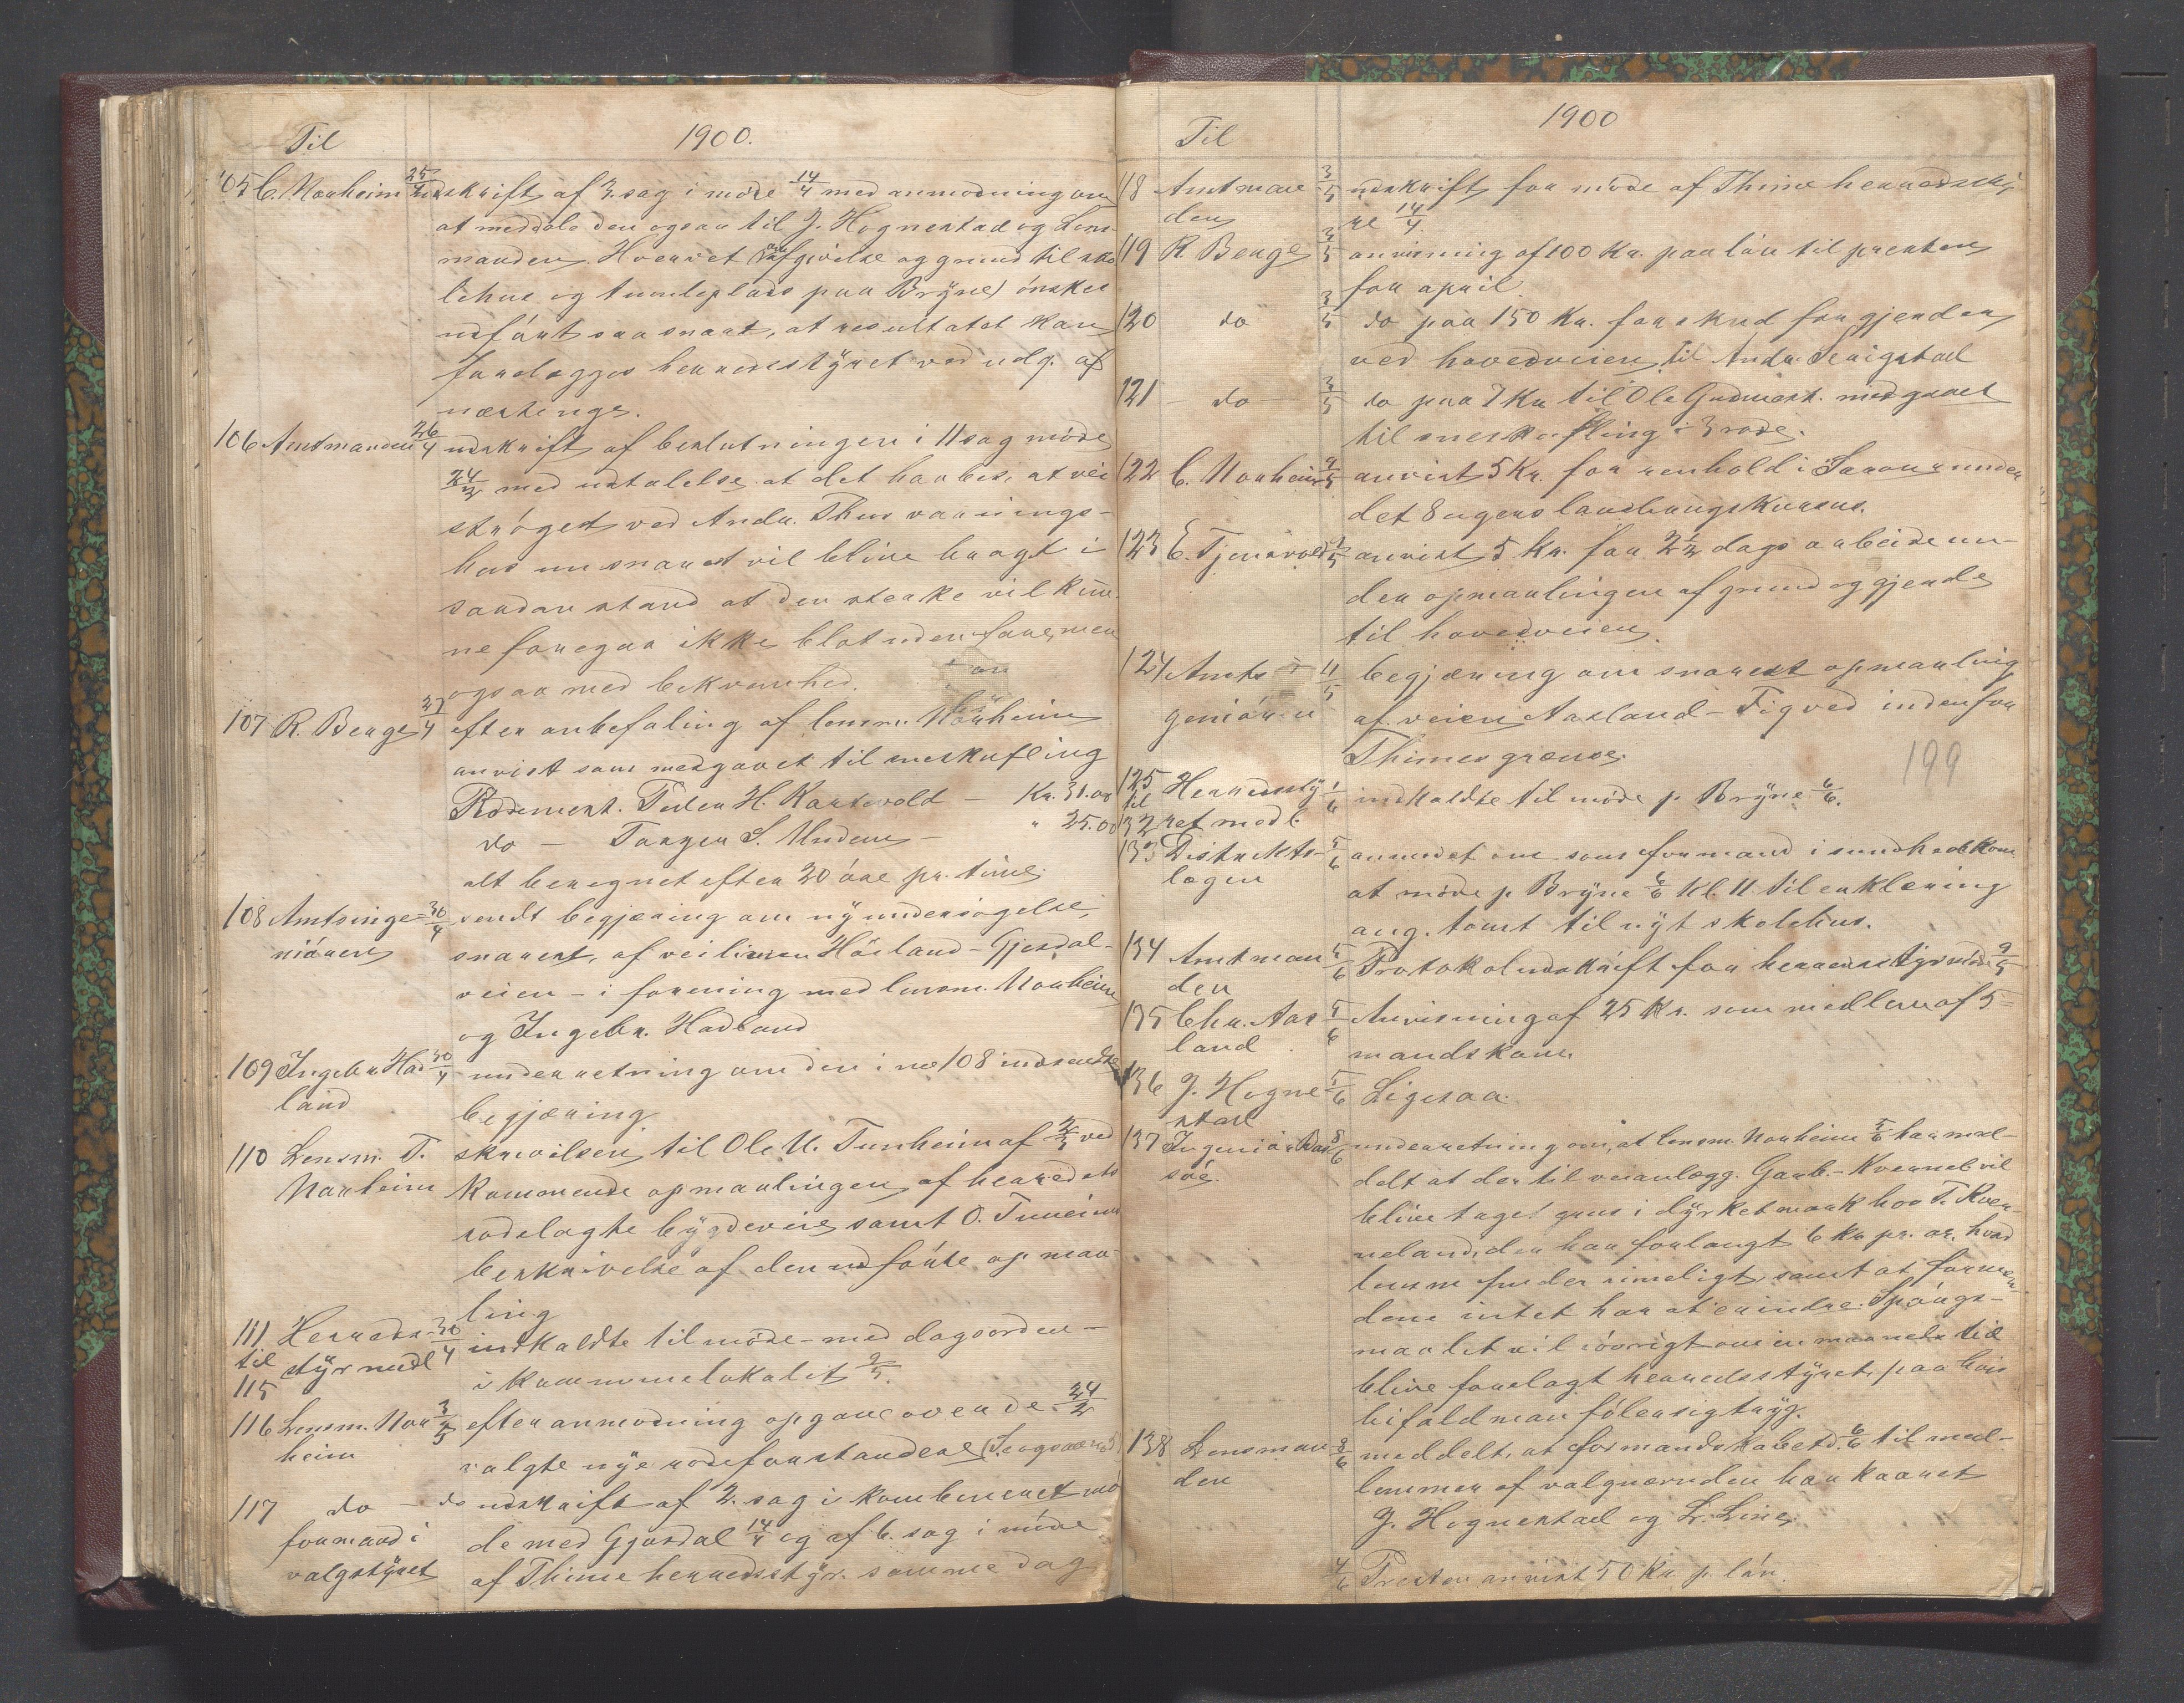 Til 1900.
105 C. Norheim 25/4 udskrift af 3. sag i møde 14/4 med anmodning om
at meddele den ogsaa til J. Hognestad og Lens-
manden. Hvervet (om afgivelse og grund til sko
lehus og tumleplads paa Bryne) ønskes
udført saa snart, at resultatet kan
forelægges herredsstyret ved udg. af
næstuge.
106 Amtmanden 26/4 udskrift af beslutningen i 11 sag møde
24/2 med udtalelse at det haabes, at vei
strøget ved Andr. Thus vaanings-
hus nu snarest vil blive bragt i
saadan stand at den sterke vil kun-
ne foregaa ikke blot uden fare, men
ogsaa med bekvemhed.
107 R. Berge 27/4 efter anbefaling af lensm. Norheim
anvist som medgaaet til sneskufling
Rodemest. Peder H. Kartevold — Kr. 31.00
do — Torger S. Undem — " 25.00
alt beregnet efter 20 øre pr. time.
108 Amtsinge- 30/4 sendt begjæring om ny undersøgelse,
niøren snarest, af veilinien Høiland - Gjesdal-
veien - i forening med lensm. Norheim
og Ingebr. Hadland
109 Ingebr Had 30/4 underretning om den i no 108 indsendte
land begjæring
110 Lensm. T. skrivelsen til Ole U. Tunheim af 2/5 ved
Norheim kommende opmaalingen af herredets
rodelagte bygdeveie samt O. Tuneims
beskrivelse af den udførte opmaa-
ling
111 Herreds- 30/4 indkaldte til møde - med dagsorden -
til styrmedl i kommunelokalet 9/5.
115
116 Lensm. Nor 3/5 efter anmodning opgave over de 24/2
heim valgte nye rodeforstandere
117 do - do udskrift af 2. sag i kombineret mø
formand i de med Gjesdal 14/4 og af 6. sag i møde
valgstyret af Thime herredsstyr. samme dag
Til 1900
118 Amtman 3/5 udskrift for møde af Thime herredssty
den re 14/4.
119 R Berge 3/5 anvisning af 100 Kr. paa løn til presten
for april
120 do 3/5 do paa 150 Kr. forskud for gjerder
ved hovedveien til Andr. Serigstad
121 - do - 3/5 do paa 7 Kr til Ole Gudmest. medgaaet
til sneskufling i 3 rode.
122 C. Norheim 9/5 anvist 5 Kr. for renhold i Saron under
det 8 ugers landbrugskursus.
123 E. Tjensvold 9/5 anvist 5 kr. for 2½ dags arbeide un-
der opmaalingen af grund og gjerde
til hovedveien.
124 Amts 11/5 begjæring om snarest opmaaling
geniøren af veien Aasland - Figved indenfor
Thimes grænse.
199
125 Herredssty 1/6 indkaldte til møde p. Bryne 6/6.
til
132 ret medl.
133 Distrikts- 5/6 anmodet om som formand i sundhedskom
lægen at møde p. Bryne 6/6 Kl. 11 til erklæring
ang. tomt til nyt skolehus.
134 Amtman 5/6 Protokoludskrift for herredsstyrmøde 9/5
den
135 Chr. Aas 5/6 Anvisning af 25 Kr. som medlem af 5-
land mandskom.
136 J. Hogne- 5/6 Ligesaa.
stad
137 Ingeniør 8/6 underretning om, at lensm. Norheim 5/6 har mel-
søe. delt at der til veianlægg. Garb.- Kvernel. vil
blive taget grus i dyrket mark hos T. Kver-
neland, der har forlangt 6 Kr pr. ar, hvad
lensm finder rimeligt, samt at formen
dene intet har at erindre. Spørgs-
maalet vil iøvrigt om en maaneds tid
blive forelagt herredsstyret, paa hvis
bifald man føler sig tryg.
138 Lensman 8/6 meddelt, at formandskabet d. 6/6 til med-
den lemmer af valgnævnden har kaaret
J. Hognestad og L. Line.
4/6 Presten anvist 50 Kr. p. løn.